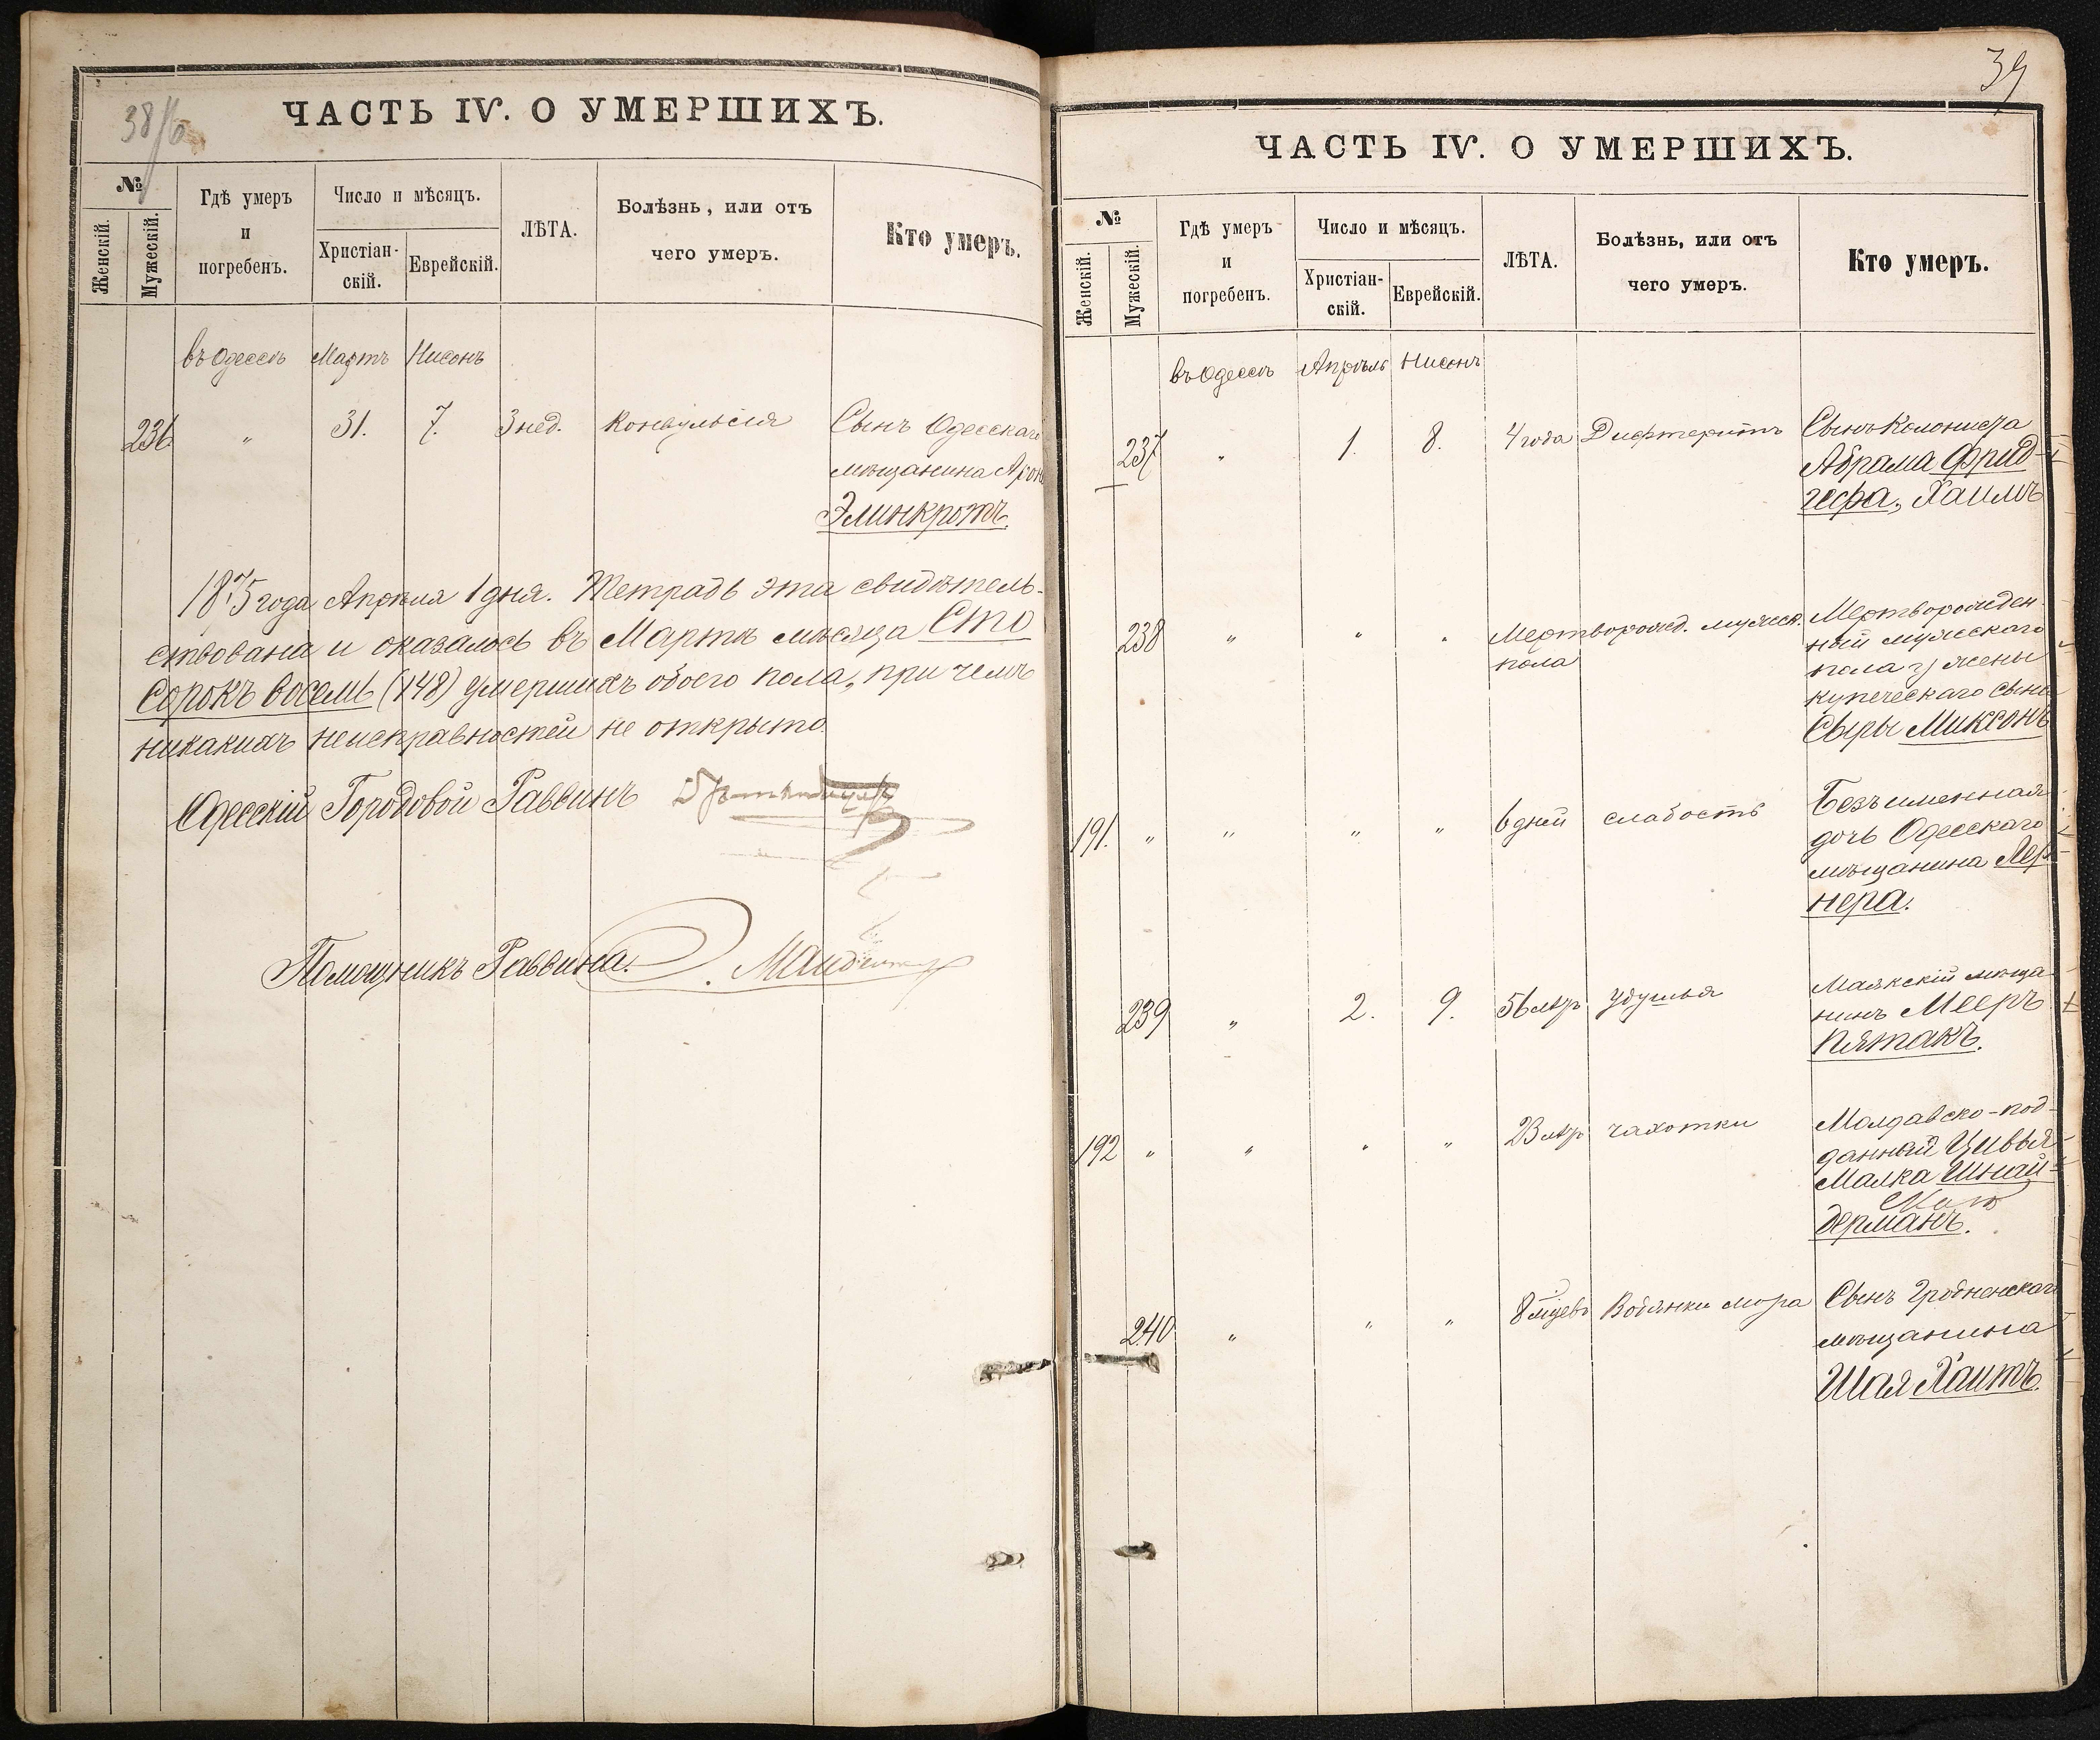 38/б
ЧАСТЬ IV. О УМЕРШИХЪ.
№
Женскій.
Мужескій.
Гдѣ умеръ
и
погребенъ.
Число и мѣсяцъ.
Христіан-
скій.
Еврейскій.
ЛѢТА.
Болѣзнь, или отъ
чего умеръ.
Кто умеръ.
въ Одессѣ Мартъ Нисонъ
236 " 31. 7. 3 нед. Конвульсія Сынъ Одесскаго
мѣщанина Арон
Элинкротъ.
1875 года Апрѣля 1 дня. Тетрадь эта свидѣтель-
ствована и оказалось въ Мартѣ мѣсяца Сто
Сорокъ восемь (148) умершихъ обоего пола, при чемъ
никакихъ неисправностей не открыто.
Одесскій Городовой Раввинъ
Помощникъ Раввина.
39
ЧАСТЬ IV. О УМЕРШИХЪ.
№
Женскій.
Мужескій.
Гдѣ умеръ
и
погребенъ.
Число и мѣсяцъ.
Христіан-
скій.
Еврейскій.
ЛѢТА.
Болѣзнь, или отъ
чего умеръ.
Кто умеръ.
въ Одессѣ Апрѣль Нисонъ
237 " 1. 8. 4 года Дифтеритъ Сынъ Колониста
Абрама Фрид-
гефа, Хаимъ
238 " " " Мертворожд. мужеск. пола Мертворожден-
ный мужескаго
пола у жены
купеческаго сына
Сыры Миксонъ
191. " " " " 6 дней слабость Безъименная
дочь Одесскаго
мѣщанина Лер-
нера.
239 " 2. 9. 56 лѣтъ удушья Маякскій мѣща-
нинъ Мееръ
Пятакъ.
192 " " " " 23 лѣтъ чахотки Молдавско-под-
данный Цивья
Малка Шнай-
дерманъ.
240 " " " 8 мѣцевъ Водянки мозга Сынъ Гродненскаго
мѣщанина
Шая Хаитъ.